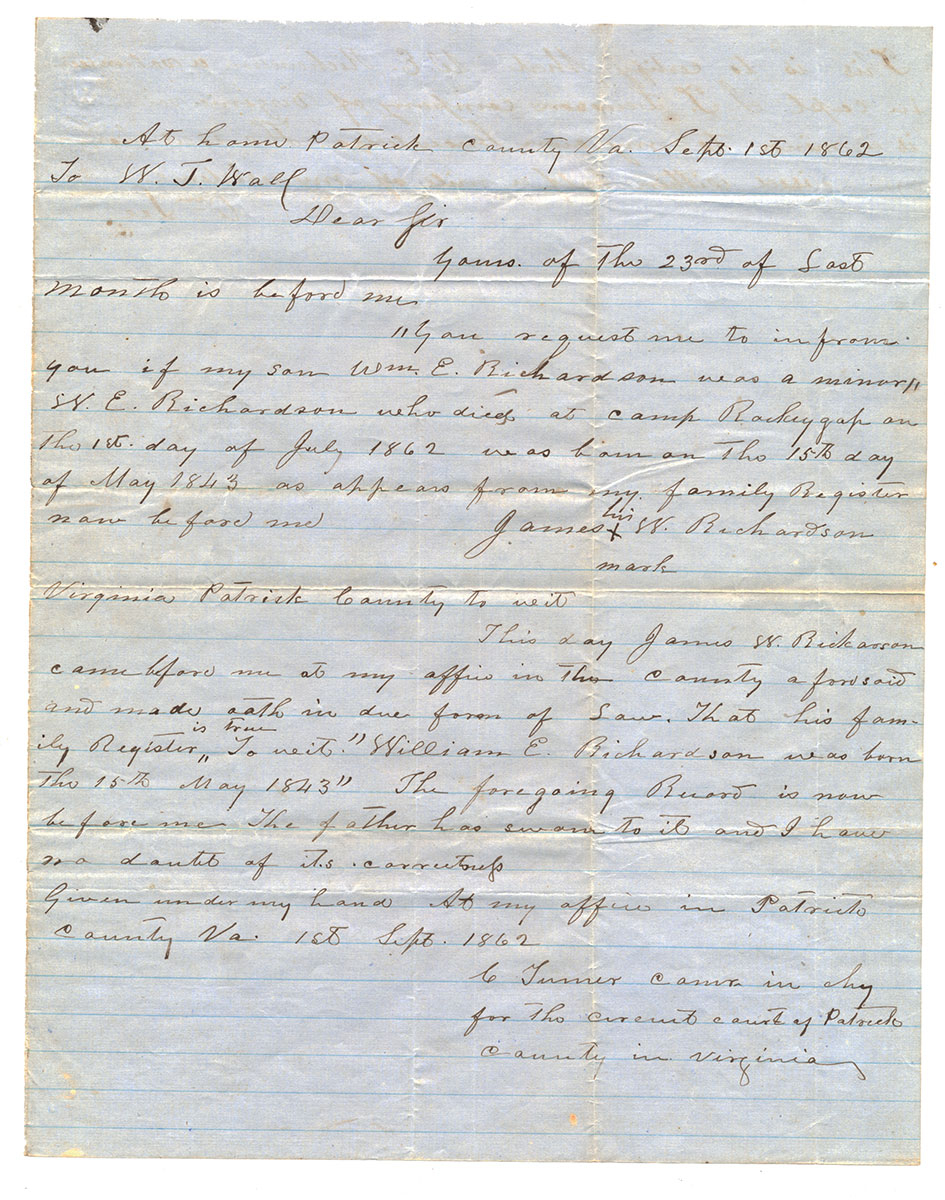 At home Patrick County Va. Sept. 1st 1862
To W. T. Wall
Dear Sir
Yours. of the 23rd of Last
month is before me
"You request me to infrom
you if my son Wm. E. Richardson was a minor"
W. E. Richardson who died at camp Rockeygap on
the 1st. day of July 1862 was born on the 15th day
of May 1843 as appears from my family Register
now before me James his X W. Richardson
mark
Virginia Patrick County to wit
This day James W. Richarson
came before me at my office in the County aforesaid
and made oath in due form of Law. That his fam-
is true
ily Register, "To wit." William E. Richardson was born
the 15th May 1843" The foregoing Record is now
before me The father has sworn to it and I have
no doubt of its correctness
Given under my hand At my office in Patrick
County Va. 1st Sept. 1862
C Turner comr in chy
for the circuit court of Patrick
County in Virginia